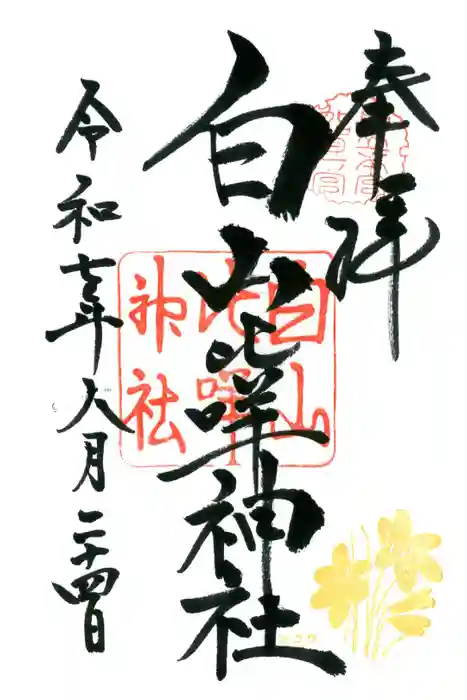 奉拝
白山比咩神社
令和七年六月二十四日
白山
比咩
神社